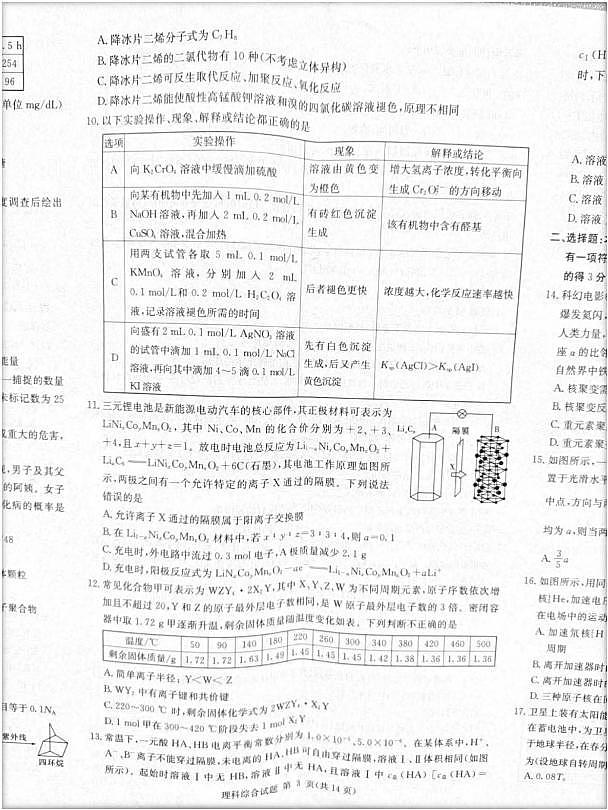 A.降冰片二烯分子式为 C₇H₈
B.降冰片二烯的二氯代物有 10 种(不考虑立体异构)
C.降冰片二烯可发生取代反应、加聚反应、氧化反应
D.降冰片二烯能使酸性高锰酸钾溶液和溴的四氯化碳溶液褪色,原理不相同
10.以下实验操作、现象、解释或结论都正确的是
选项 实验操作 现象 解释或结论
A 向 K₂CrO₄ 溶液中缓慢滴加硫酸 溶液由黄色变为橙色 增大氢离子浓度,转化平衡向生成 Cr₂O₇²⁻ 的方向移动
B 向某有机物中先加入 1 mL 0.2 mol/L NaOH 溶液,再加入 2 mL 0.2 mol/L CuSO₄ 溶液,混合加热 有砖红色沉淀生成 该有机物中含有醛基
C 用两支试管各取 5 mL 0.1 mol/L KMnO₄ 溶液,分别加入 2 mL 0.1 mol/L和 0.2 mol/L H₂C₂O₄ 溶液,记录溶液褪色所需的时间 后者褪色更快 浓度越大,化学反应速率越快
D 向盛有 2 mL 0.1 mol/L AgNO₃ 溶液的试管中滴加 1 mL 0.1 mol/L NaCl 溶液,再向其中滴加 4~5 滴 0.1 mol/L KI 溶液 先有白色沉淀生成,后又产生黄色沉淀 Ksp(AgCl)>Ksp(AgI)
11.三元锂电池是新能源电动汽车的核心部件,其正极材料可表示为
LiNiₓCoᵧMn_zO₂,其中 Ni、Co、Mn 的化合价分别为+2、+3、
+4,且 x+y+z=1。放电时电池总反应为 Li₁₋ₐNiₓCoᵧMn_zO₂+
LiₐC₆══LiNiₓCoᵧMn_zO₂+6C(石墨),其电池工作原理如图所
示,两极之间有一个允许特定的离子 X 通过的隔膜。下列说法
错误的是
A 隔膜 B
X
A.允许离子 X 通过的隔膜属于阳离子交换膜
B.在 Li₁₋ₐNiₓCoᵧMn_zO₂ 材料中,若 x:y:z=3:3:4,则 a=0.1
C.充电时,外电路中流过 0.3 mol 电子,A 极质量减少 2.1 g
D.充电时,阳极反应式为 LiNiₓCoᵧMn_zO₂-ae⁻══Li₁₋ₐNiₓCoᵧMn_zO₂+aLi⁺
12.常见化合物甲可表示为 WZY₄·2XᵢY,其中 X、Y、Z、W 为不同周期元素,原子序数依次增
加且不超过 20,Y 和 Z 的原子最外层电子数相同,是 W 原子最外层电子数的 3 倍。密闭容
器中取 1.72 g 甲逐渐升温,剩余固体质量随温度变化如表。下列判断不正确的是
温度/℃ 50 90 140 180 220 260 300 340 380 420 460 500
剩余固体质量/g 1.72 1.72 1.63 1.49 1.45 1.45 1.45 1.42 1.38 1.36 1.36 1.36
A.简单离子半径:Y<W<Z
B.WY₂ 中有离子键和共价键
C.220~300 ℃ 时,剩余固体化学式为 2WZY₄·X₂Y
D.1 mol 甲在 300~420 ℃阶段失去 1 mol X₂Y
13.常温下,一元酸 HA、HB 电离平衡常数分别为 1.0×10⁻⁴、5.0×10⁻⁶。在某体系中,H⁺、
A⁻、B⁻ 离子不能穿过隔膜,未电离的 HA、HB 可自由穿过隔膜,溶液 Ⅰ、Ⅱ体积相同(如图
所示)。起始时溶液 Ⅰ 中无 HB,溶液 Ⅱ 中无 HA,且溶液 Ⅰ 中 c总(HA)〔c总(HA)=
理科综合试题 第 3 页(共 14 页)
.5 h
254
96
单位 mg/dL)
度调查后给出
能量
一捕捉的数量
未标记数为 25
成重大的危害,
,男子及其父
的阿姨。女子
化病的概率是
48
体颗粒
子聚合物
相等于 0.1Nₐ
紫外线
四环烷
c₁(H
时,下
A.溶液
B.溶液
C.溶液
D.溶液
二、选择题:
有一项符
的得 3 分
14.科幻电影
爆发氦闪,
人类力量,
座 a 的比邻
自然界中铁
A.核聚变需
B.核聚变反
C.重元素聚
D.重元素聚
15.如图所示,一
置于光滑水平
中点,方向与
均为 a,则当两
A. 3/5 a
16.如图所示,用同
核³He,加速电压
在电场中的运动
A.加速氚核³H
周期
B.离开加速器时
C.离开加速器时
D.三种原子核在
17.卫星上装有太阳能
在蓄电池中,为卫星
于地球半径,在春分
为(设地球自转周期
A.0.08T,